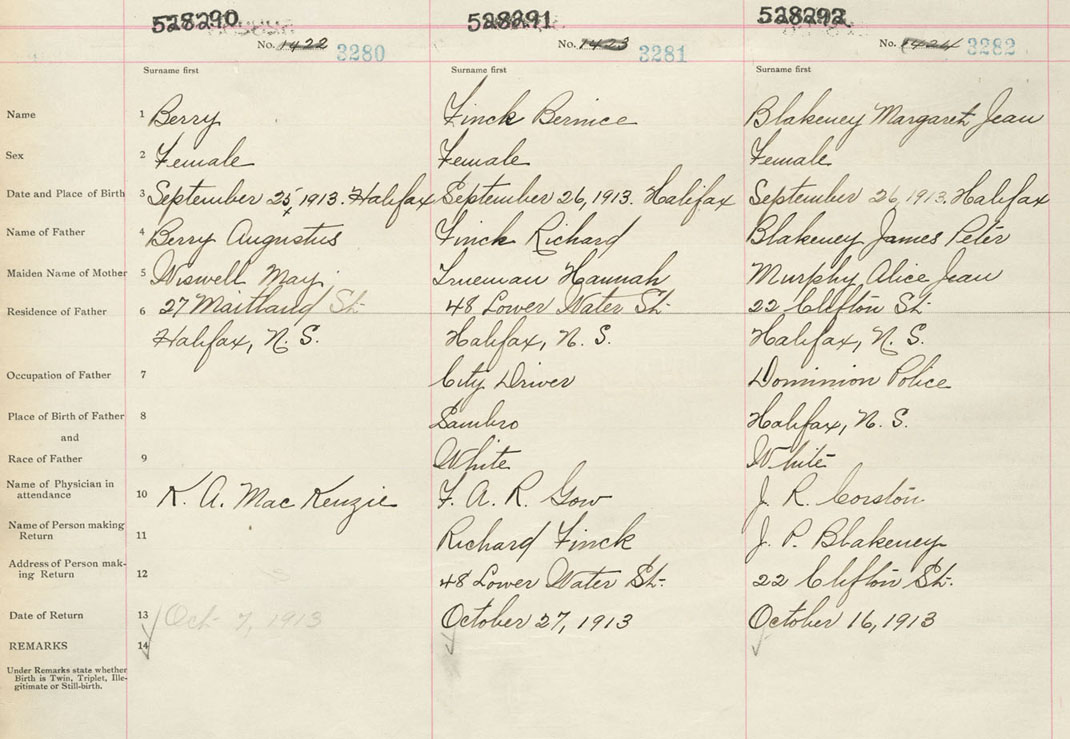 528290 528291 528292
No. 1422 3280 No. 1423 3281 No. 1424 3282
Surname first Surname first Surname first
Name 1 Berry Finck Bernice Blakeney Margaret Jean
Sex 2 Female Female Female
Date and Place of Birth 3 September 25, 1913. Halifax September 26, 1913. Halifax September 26, 1913. Halifax
Name of Father 4 Berry Augustus Finck Richard Blakeney James Peter
Maiden Name of Mother 5 Wiswell May Trueman Hannah Murphy Alice Jean
Residence of Father 6 27 Maitland St. 48 Lower Water St. 22 Clifton St.
Halifax, N. S. Halifax, N. S. Halifax, N. S.
Occupation of Father 7 City Driver Dominion Police
Place of Birth of Father 8 Sambro Halifax, N. S.
and
Race of Father 9 White White
Name of Physician in
attendance 10 K. A. Mac Kenzie F. A. R. Gow J. R. Corston
Name of Person making
Return 11 Richard Finck J. P. Blakeney
Address of Person mak-
ing Return 12 48 Lower Water St. 22 Clifton St.
Date of Return 13 Oct 7, 1913 October 27, 1913 October 16, 1913
REMARKS 14
Under Remarks state whether
Birth is Twin, Triplet, Ille-
gitimate or Still-birth.